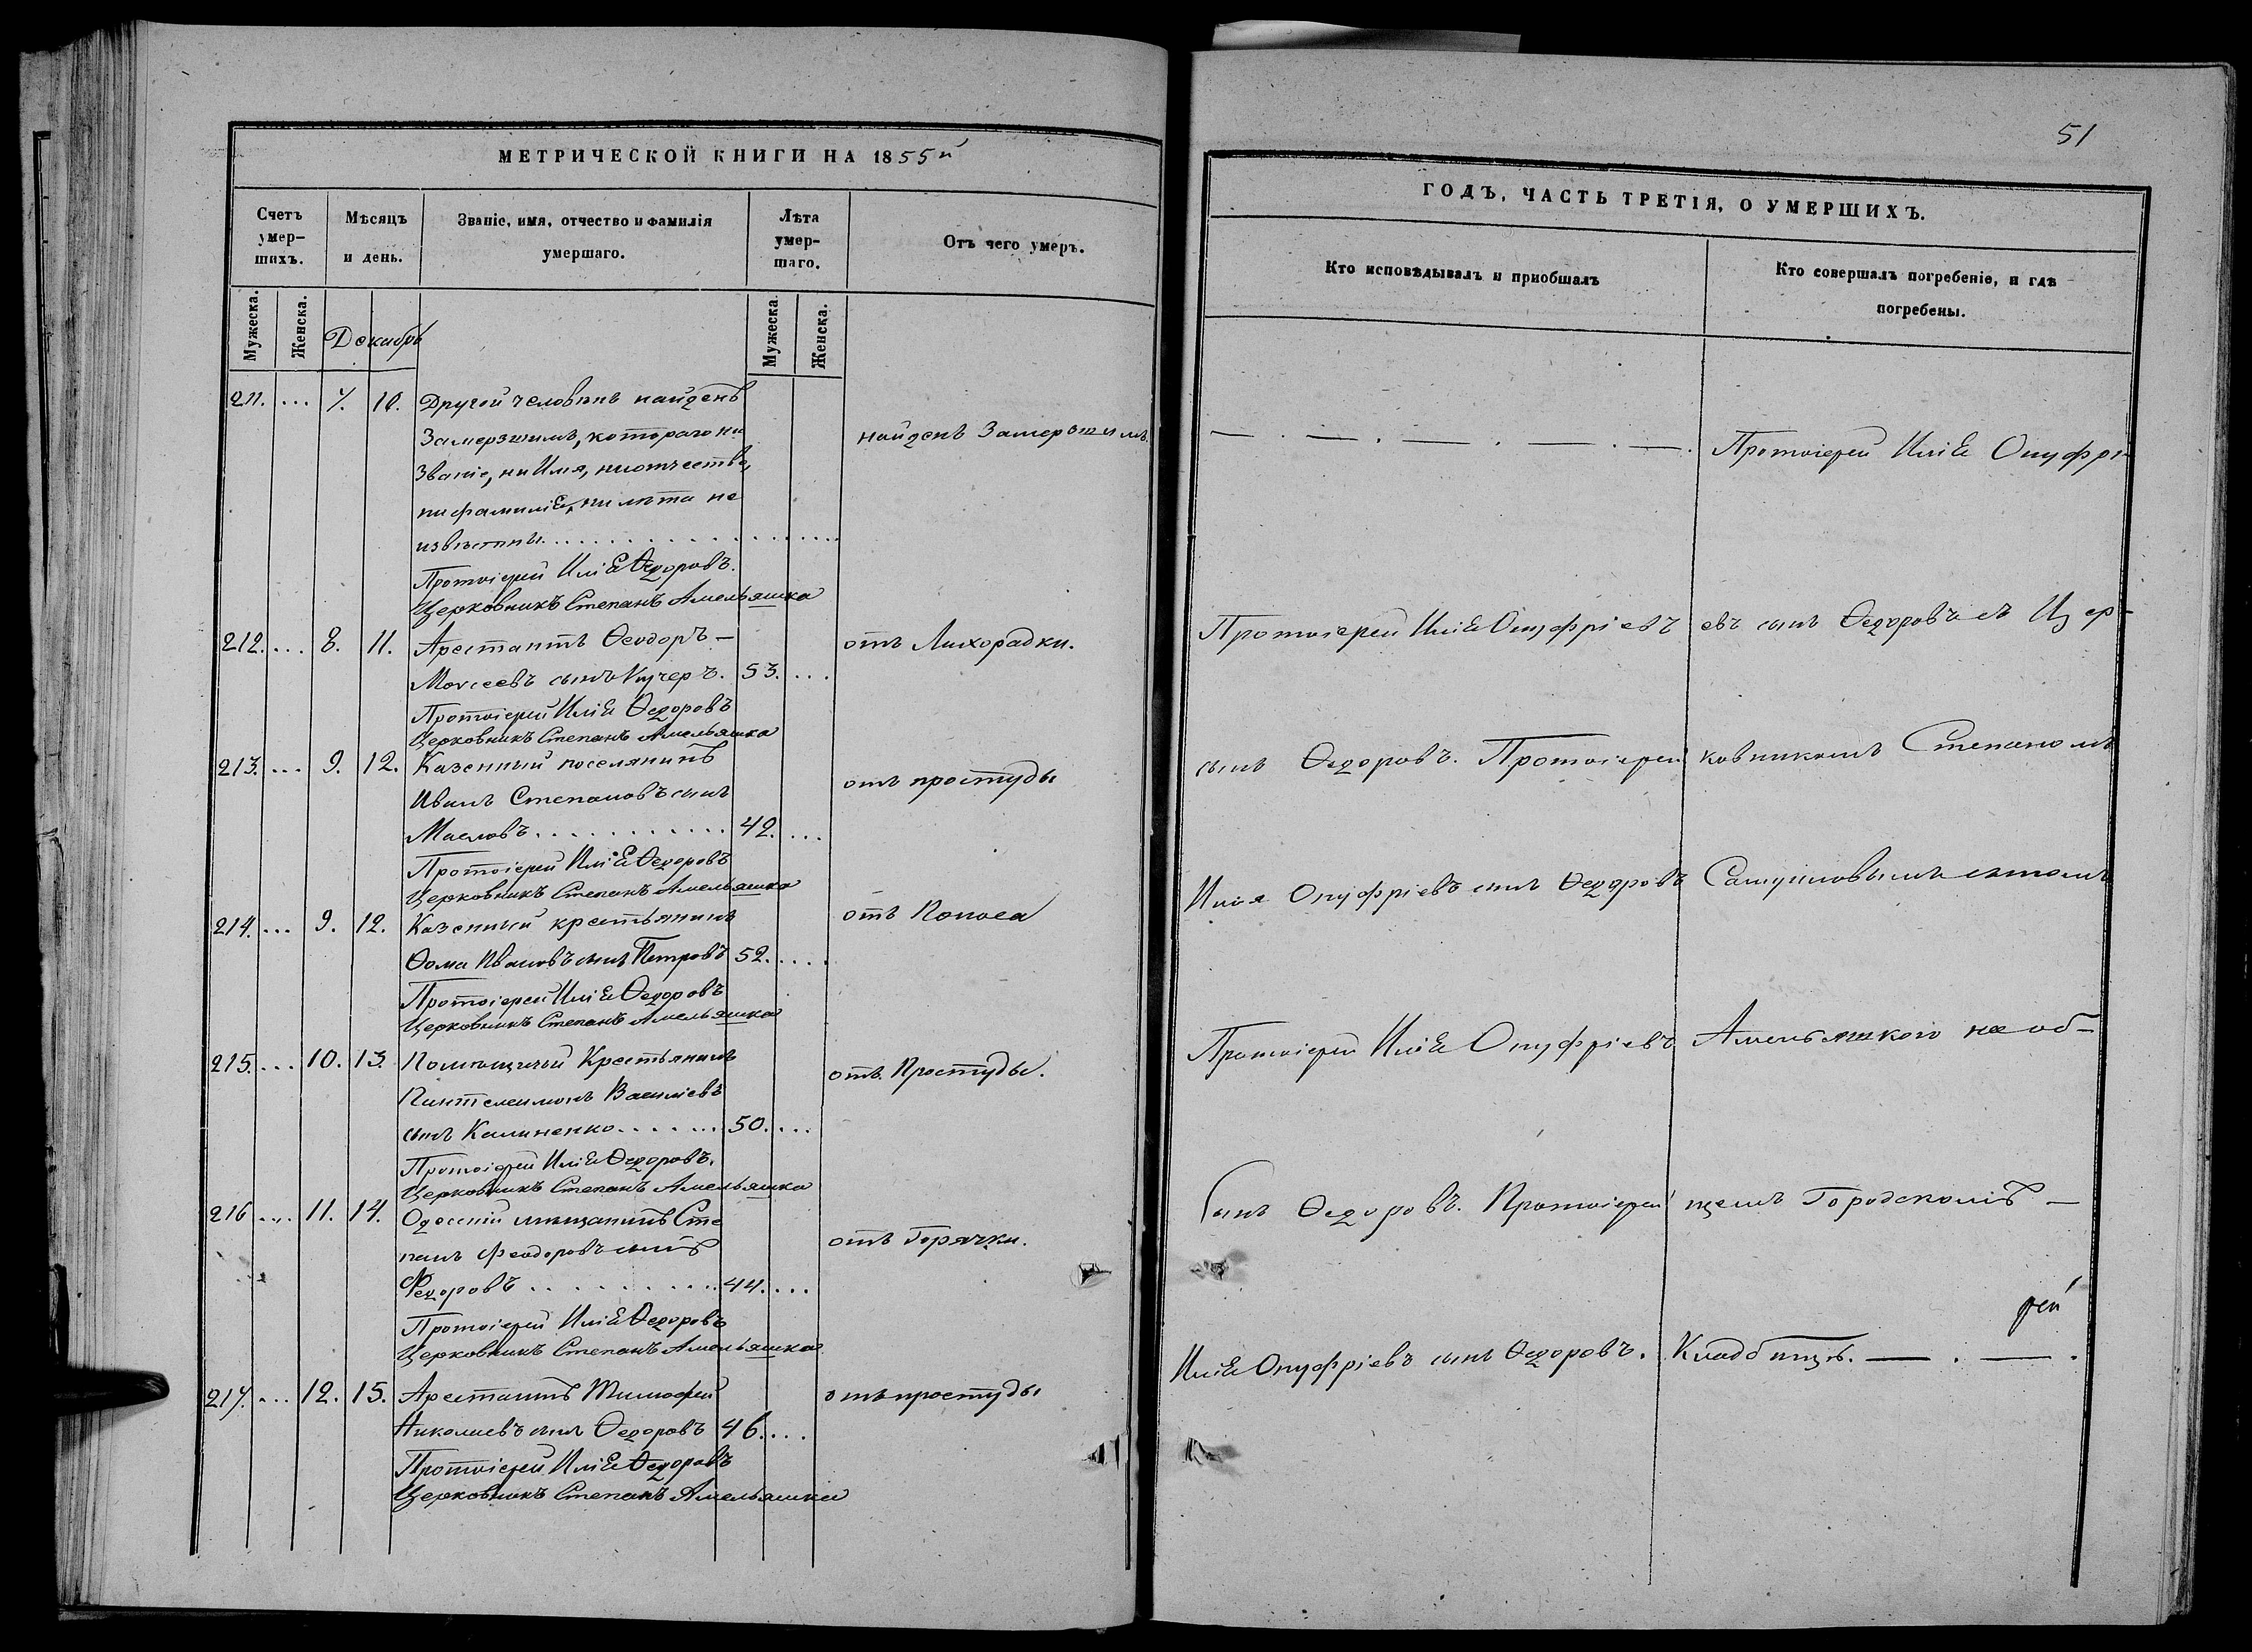 МЕТРИЧЕСКОЙ КНИГИ НА 1855й
Счетъ умер–шихъ.
Мѣсяцъ и день.
Званіе, имя, отчество и фамилія умершаго.
Лѣта умер–шаго.
Отъ чего умеръ.
Мужеска. Женска.
Декабрь
Мужеска Женска.
211. ... 7. 10. Другой человѣкъ найденъ
Замерзшимъ, котораго ни
Званіе, ни Имя, ни отчество,
ни фамиліе, ни лѣта не
извѣстны.
найденъ Замерзшимъ.
Протоіерей Иліе Ѳедоровъ.
Церковникъ Степанъ Амельяшко
212. ... 8. 11. Арестантъ Ѳеодоръ –
Моѵсеевъ сынъ Кучеръ. 53. ...
отъ Лихорадки.
Протоіерей Иліе Ѳедоровъ
Церковникъ Степанъ Амельяшко
213. ... 9. 12. Казенный поселянинъ
Иванъ Степановъ сынъ
Масловъ 42. ...
отъ простуды
Протоіерей Иліе Ѳедоровъ
Церковникъ Степанъ Амельяшко
214. ... 9. 12. Казенный крестьянинъ
Ѳома Ивановъ сынъ Петровъ 52. ...
отъ Поноса
Протоіерей Иліе Ѳедоровъ
Церковникъ Степанъ Амельяшко
215. ... 10. 13. Помѣщичій Крестьянинъ
Пантелеимонъ Василіевъ
сынъ Калиненко 50. ...
отъ Простуды.
Протоіерей Иліе Ѳедоровъ.
Церковникъ Степанъ Амельяшко
216 ... 11. 14. Одесскій мѣщанинъ Сте
панъ Феодоровъ сынъ
Федоровъ 44. ...
отъ Горячки.
Протоіерей Иліе Ѳедоровъ
Церковникъ Степанъ Амельяшко
217. ... 12. 15. Арестантъ Тимофей
Николаевъ сынъ Ѳедоровъ 46. ...
отъ простуды
Протоіерей Иліе Ѳедоровъ
Церковникъ Степанъ Амельяшко
51
ГОДЪ, ЧАСТЬ ТРЕТІЯ, О УМЕРШИХЪ.
Кто исповѣдывалъ и пріобщалъ
Кто совершалъ погребеніе, и гдѣ погребены.
— . — . — . — . — .
Протоіерей Иліе Онуфрі-
Протоіерей Иліе Онуфріевъ
евъ сынъ Ѳедоровъ съ Цер-
сынъ Ѳедоровъ. Протоіерей
ковникомъ Степаномъ
Илія Онуфріевъ сынъ Ѳедоровъ
Самуиловымъ сыномъ
Протоіерей Иліе Онуфріевъ
Амельяшкою на об-
Сынъ Ѳедоровъ. Протоіерей
щемъ Городскомъ —
Иліе Онуфріевъ сынъ Ѳедоровъ.
Кладбищѣ. — . — .
рей